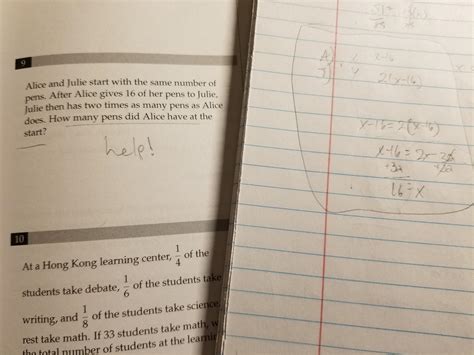 9
Alice and Julie start with the same number of
pens. After Alice gives 16 of her pens to Julie,
Julie then has two times as many pens as Alice
does. How many pens did Alice have at the
start?
help!
10
At a Hong Kong learning center, 1/4 of the
students take debate, 1/6 of the students take
writing, and 1/8 of the students take science,
rest take math. If 33 students take math, w
the total number of students at the learnin
A
J
x-16
2(x-16)
x-16=2(x-16)
16=x